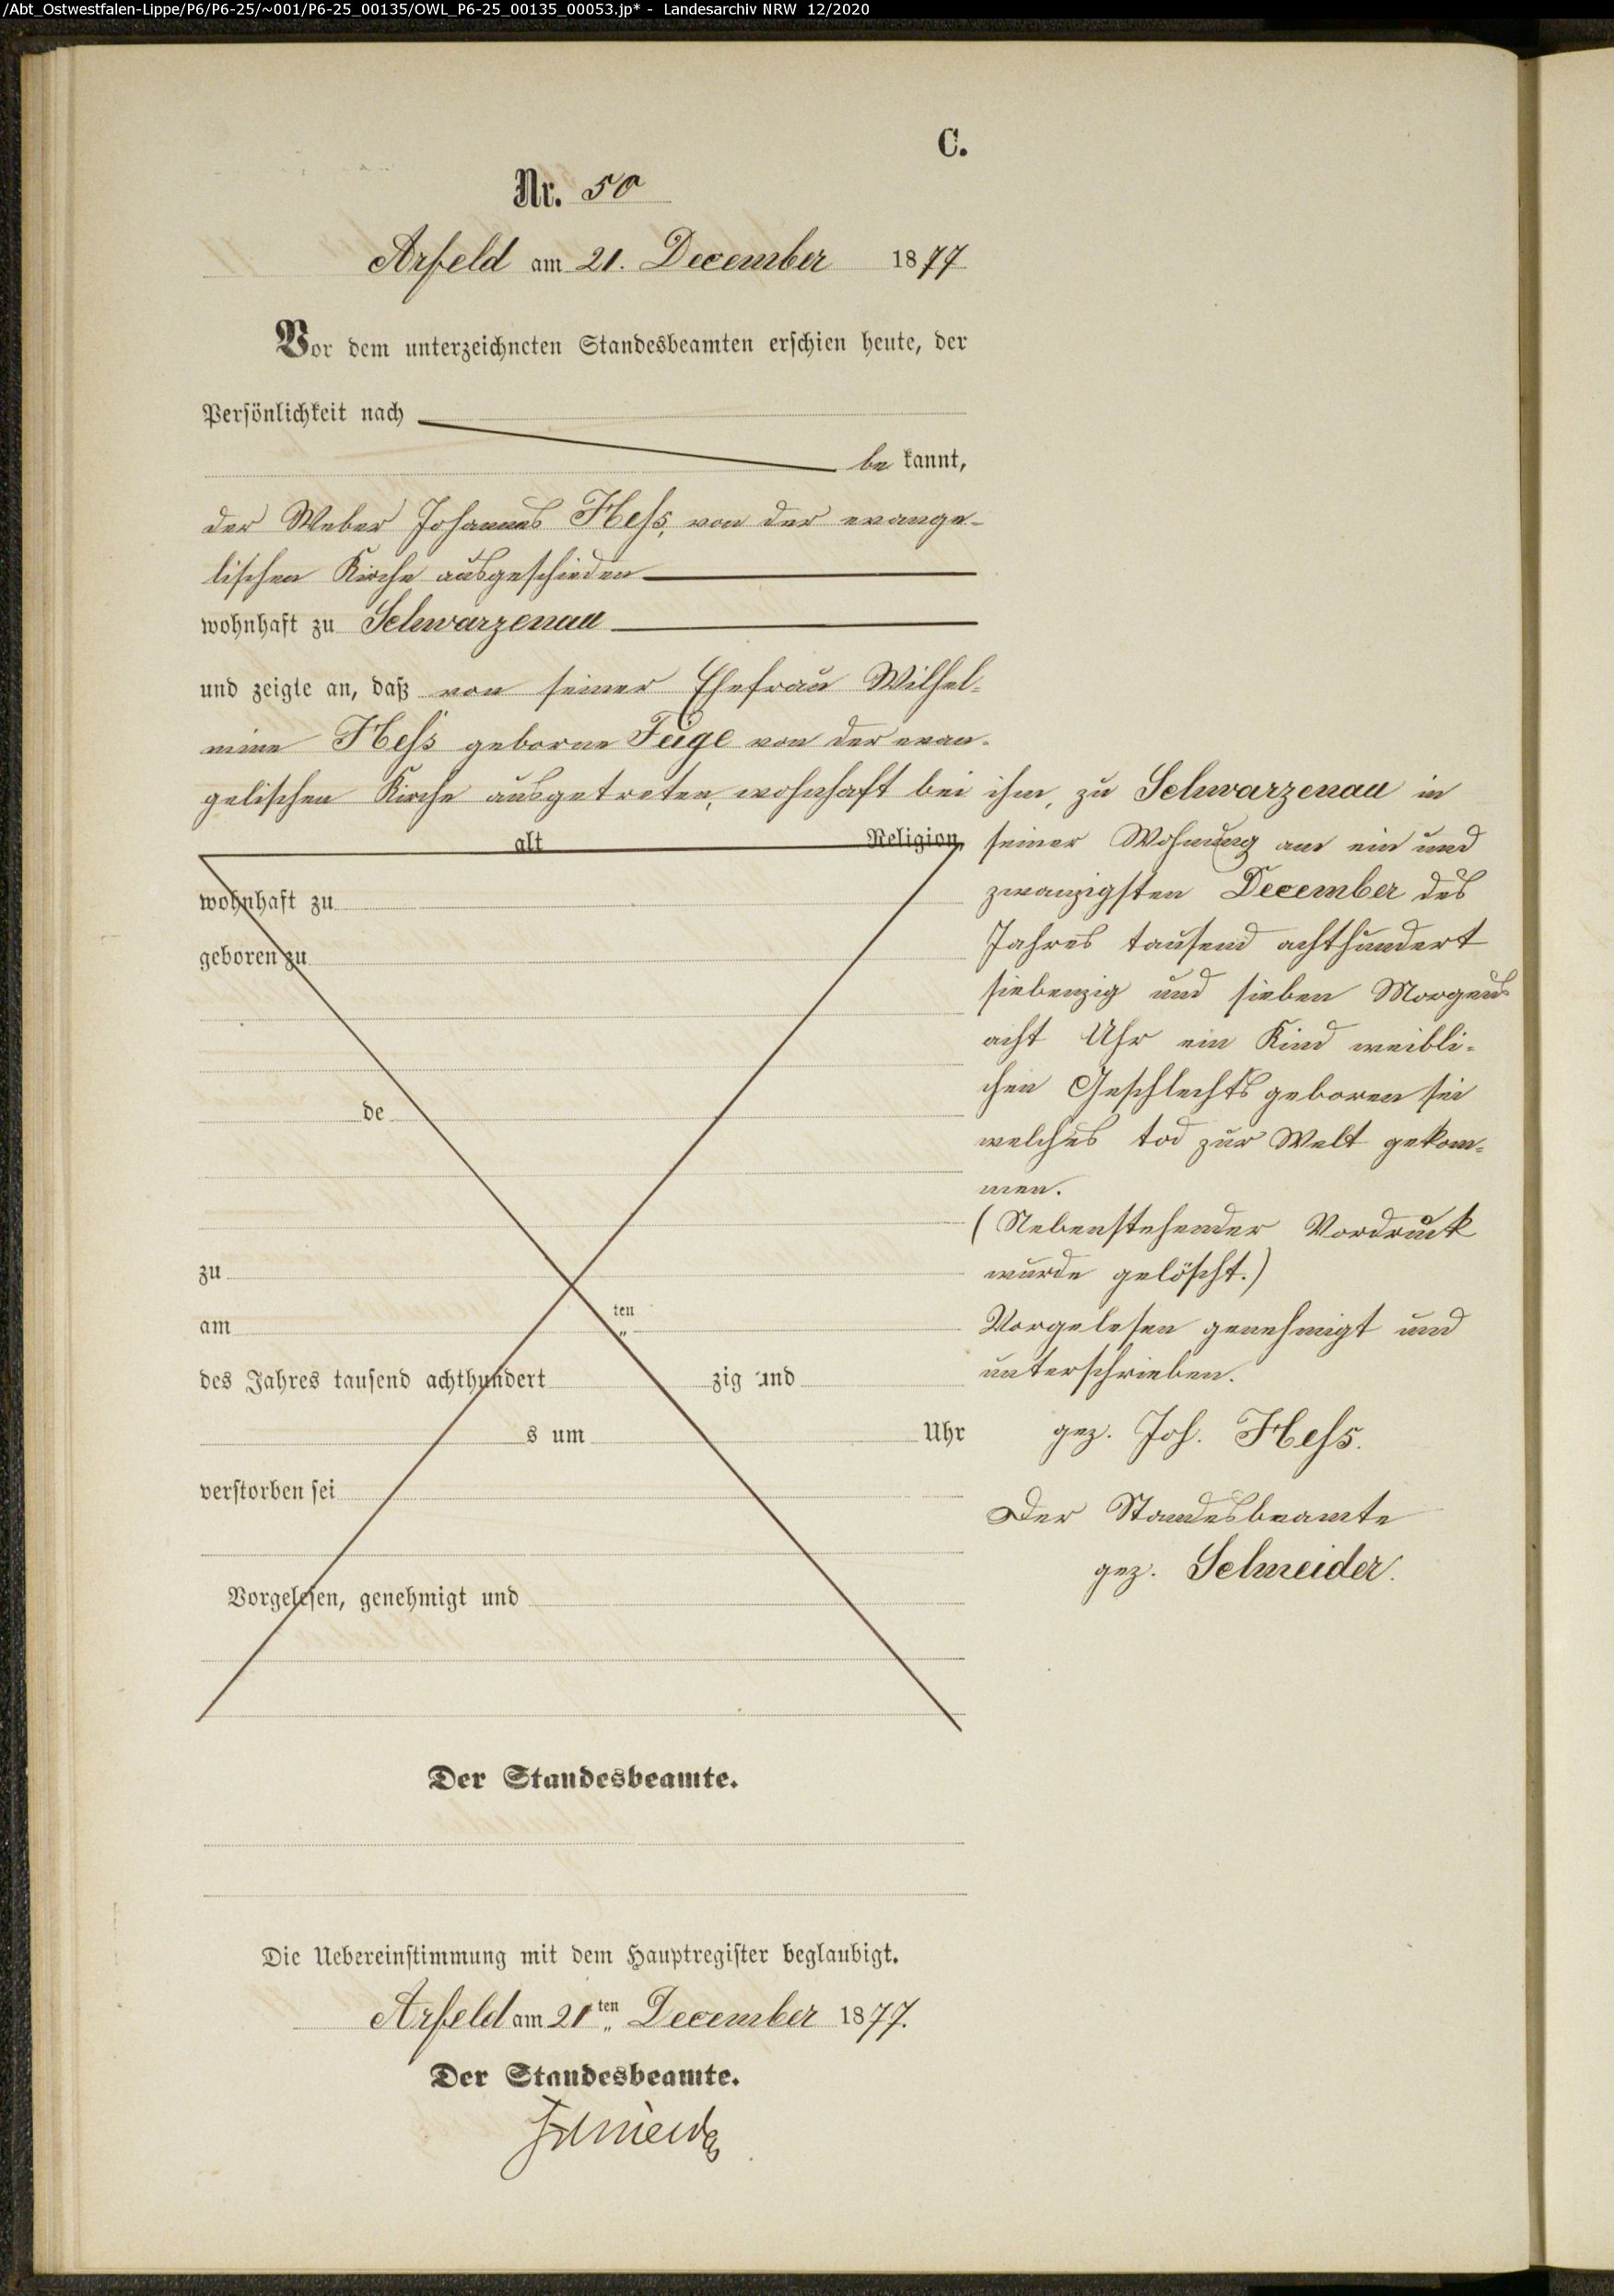 /Abt_Ostwestfalen-Lippe/P6/P6-25/~001/P6-25_00135/OWL_P6-25_00135_00053.jp* - Landesarchiv NRW 12/2020
C.
Nr. 50
Arfeld am 21. December 1877
Vor dem unterzeichneten Standesbeamten erschien heute, der
Persönlichkeit nach
be kannt,
der Weber Johannes Heſs, von der evange-
lischen Kirche ausgeschieden
wohnhaft zu Schwarzenau
und zeigte an, daß von seiner Ehefrau Wilhel-
mine Heſs geborne Feige von der evan-
gelischen Kirche ausgetreten, wohnhaft bei ihm, zu Schwarzenau in
alt Religion,
wohnhaft zu
geboren zu
de
zu
am ten
"
des Jahres tausend achthundert zig und
s um Uhr
verstorben sei
Vorgelesen, genehmigt und
seiner Wohnung am ein und
zwanzigsten December des
Jahres tausend achthundert
siebenzig und sieben Morgens
acht Uhr ein Kind weibli-
chen Geschlechts geboren sei
welches tod zur Welt gekom-
men.
(Nebenstehender Vordruck
wurde gelöscht.)
Vorgelesen genehmigt und
unterschrieben.
gez. Joh. Heſs.
Der Standesbeamte
gez. Schneider.
Der Standesbeamte.
Die Uebereinstimmung mit dem Hauptregister beglaubigt.
Arfeld am 21ten December 1877.
Der Standesbeamte.
Schneider